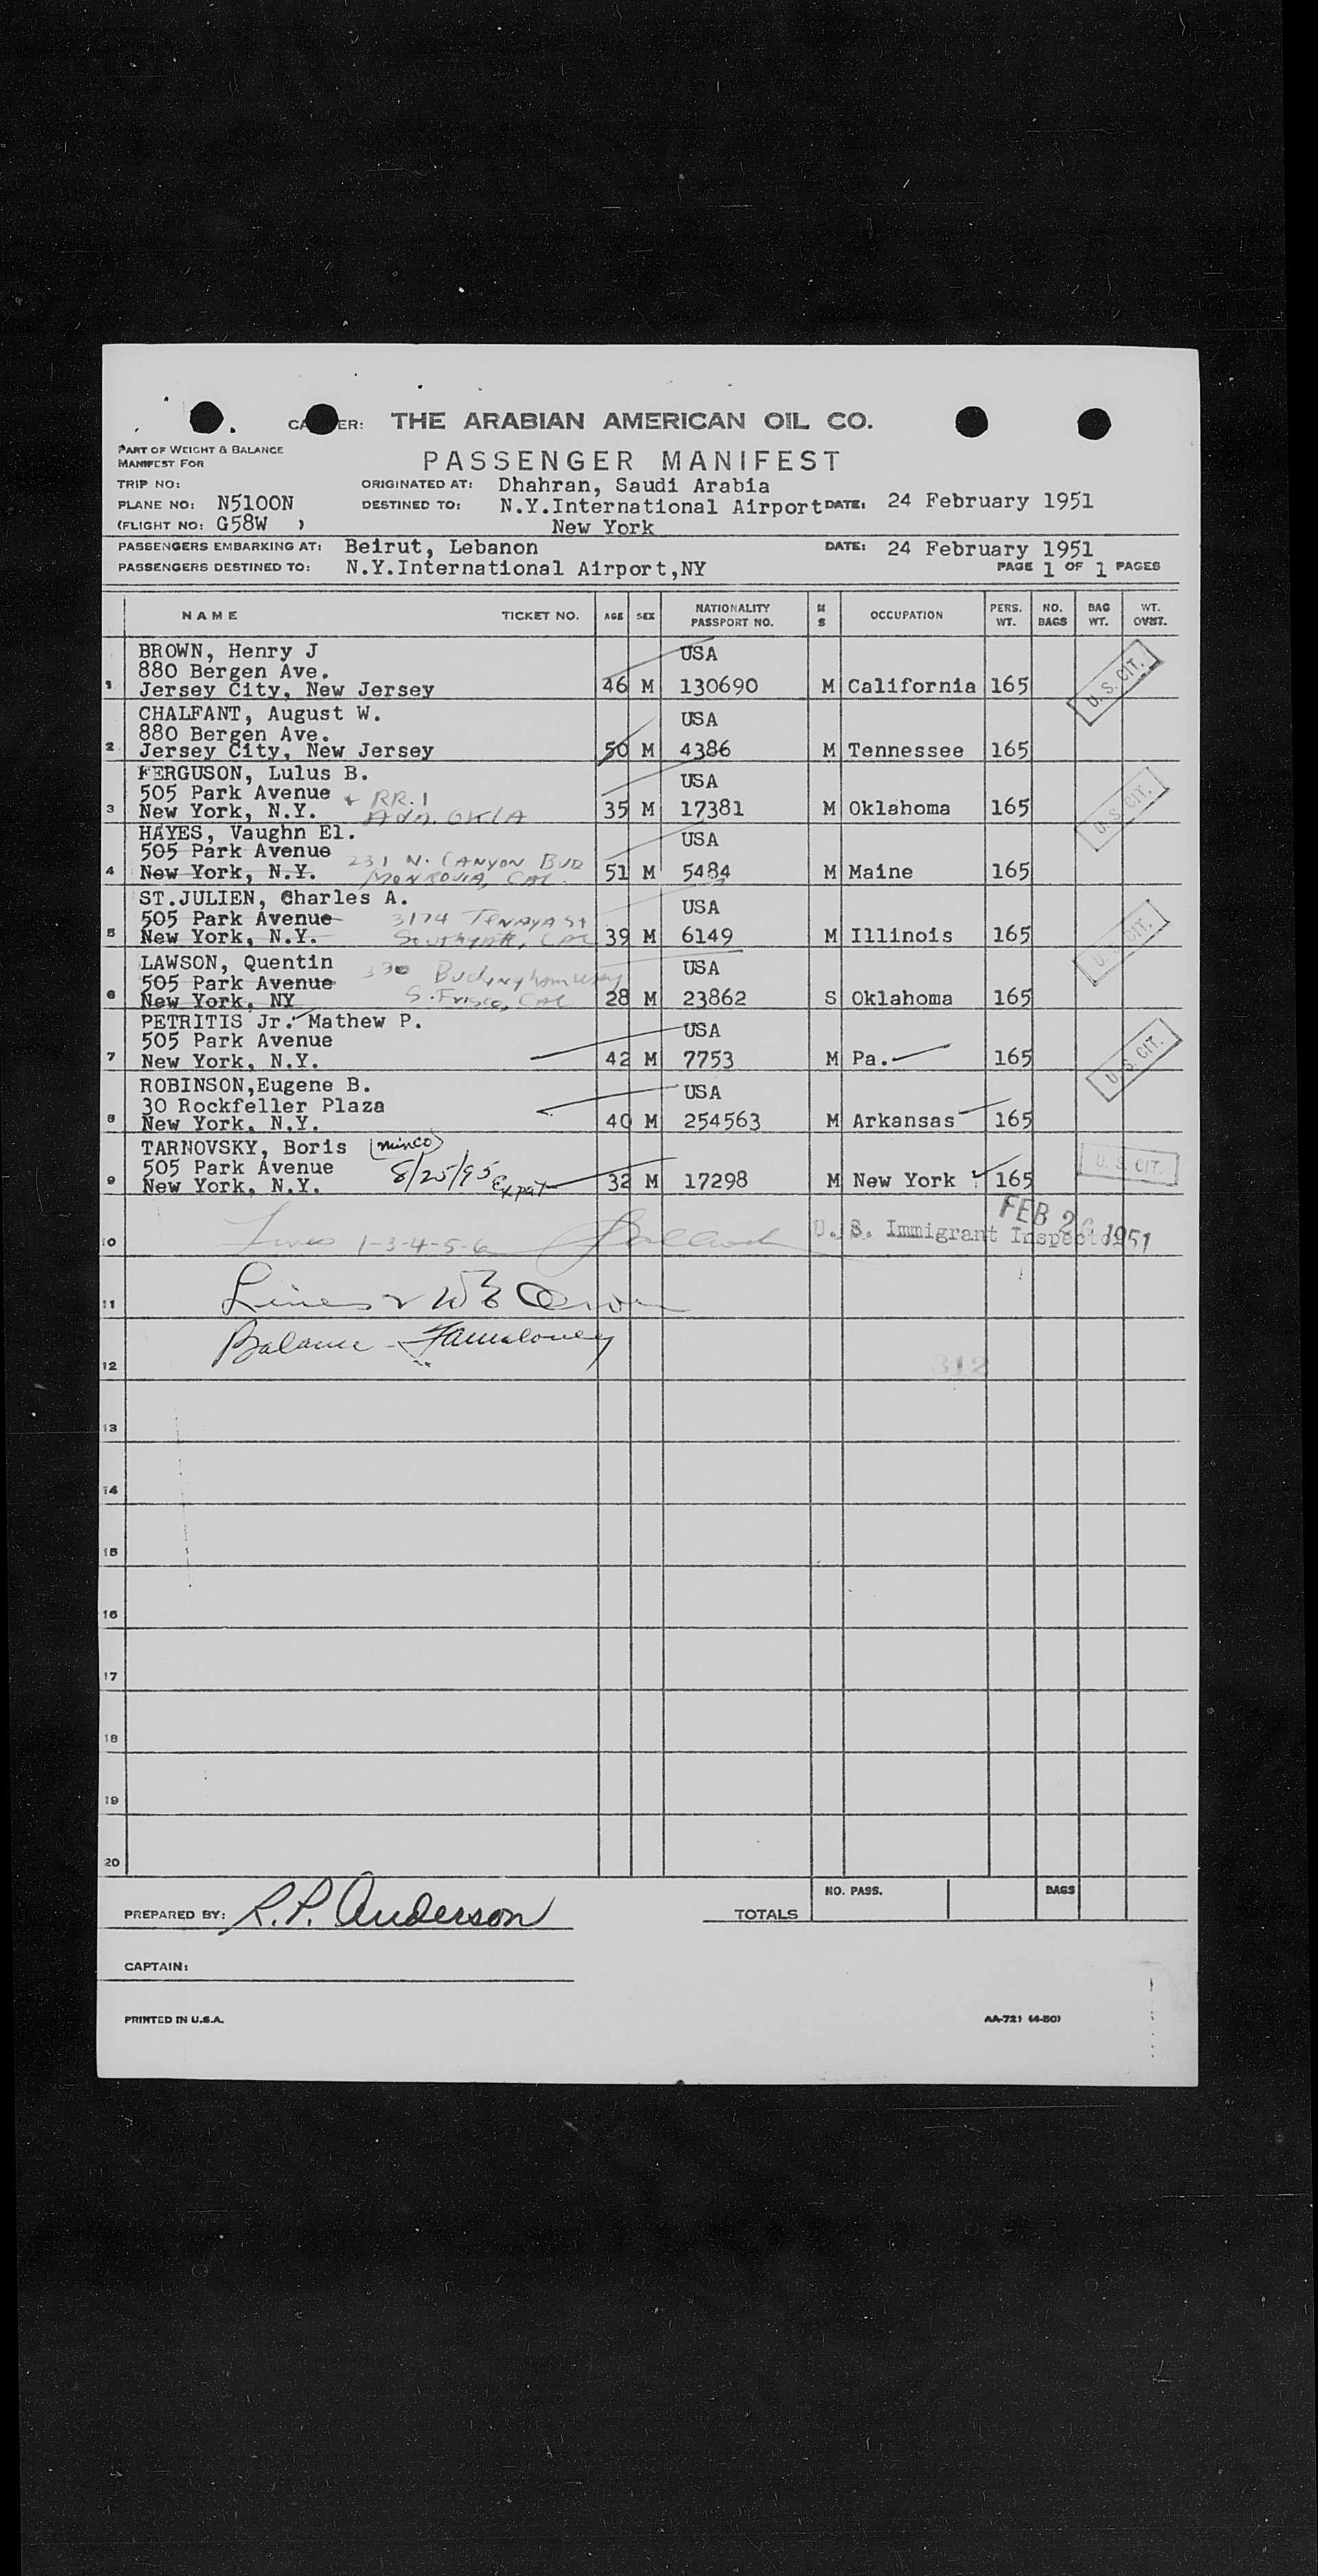 CARRIER: THE ARABIAN AMERICAN OIL CO.
PART OF WEIGHT & BALANCE
MANIFEST FOR
PASSENGER MANIFEST
TRIP NO:
ORIGINATED AT: Dhahran, Saudi Arabia
PLANE NO: N5100N
DESTINED TO: N.Y.International Airport DATE: 24 February 1951
(FLIGHT NO: G58W )
New York
PASSENGERS EMBARKING AT: Beirut, Lebanon DATE: 24 February 1951
PASSENGERS DESTINED TO: N.Y.International Airport,NY PAGE 1 OF 1 PAGES
NAME TICKET NO. AGE SEX NATIONALITY PASSPORT NO. M S OCCUPATION PERS. WT. NO. BAGS BAG WT. WT. OVST.
BROWN, Henry J USA
880 Bergen Ave.
1 Jersey City, New Jersey 46 M 130690 M California 165 U.S. CIT.
CHALFANT, August W. USA
880 Bergen Ave.
2 Jersey City, New Jersey 50 M 4386 M Tennessee 165
FERGUSON, Lulus B. USA
505 Park Avenue RR. 1
3 New York, N.Y. Ada. OKLA 35 M 17381 M Oklahoma 165 U.S. CIT.
HAYES, Vaughn El. USA
505 Park Avenue 231 N. CANYON BLVD
4 New York, N.Y. MONROVIA, CAL. 51 M 5484 M Maine 165
ST.JULIEN, Charles A. USA
505 Park Avenue 3174 TENAYA St
5 New York, N.Y. Southgate, CAL 39 M 6149 M Illinois 165 U.S. CIT.
LAWSON, Quentin USA
505 Park Avenue 330 Buckingham way
6 New York, NY S. Frisco, CAL 28 M 23862 S Oklahoma 165
PETRITIS Jr. Mathew P. USA
505 Park Avenue
7 New York, N.Y. 42 M 7753 M Pa. 165 U.S. CIT.
ROBINSON,Eugene B. USA
30 Rockfeller Plaza
8 New York, N.Y. 40 M 254563 M Arkansas 165
TARNOVSKY, Boris
505 Park Avenue 8/25/95
9 New York, N.Y. 32 M 17298 M New York 165 U.S. CIT.
FEB 26 1951
10 Lines 1-3-4-5-6 U. S. Immigrant Inspector
11 Lines 2
12 Balance 312
13
14
15
16
17
18
19
20
NO. PASS. BAGS
PREPARED BY: R.P. Anderson TOTALS
CAPTAIN:
PRINTED IN U.S.A. AA-721 (4-50)